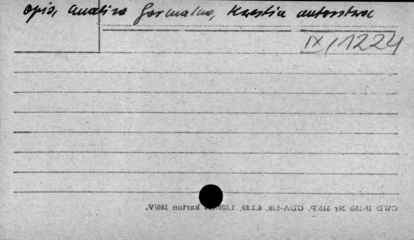 opis, analiza formalna, kwestia autorstwa
IX/1224
CWD D-15b Nr 515/P. GDA-519, 6.3.59, 1.000 karton 180/V.